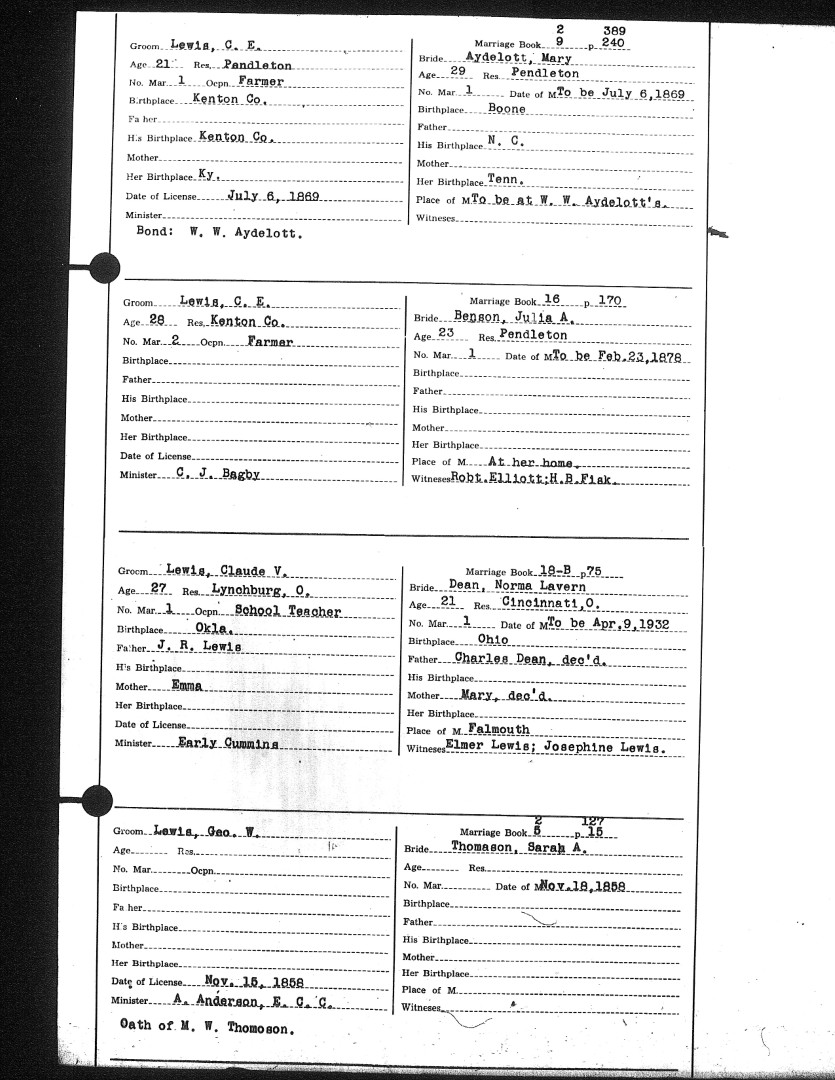 2 389
Groom Lewis, C. E. Marriage Book 9 p 240
Age 21 Res. Pendleton Bride Aydelott, Mary
No. Mar 1 Ocpn. Farmer Age 29 Res. Pendleton
Birthplace Kenton Co. No. Mar. 1 Date of M To be July 6,1869
Fa her Birthplace Boone
H's Birthplace Kenton Co. Father
Mother His Birthplace N. C.
Her Birthplace Ky. Mother
Date of License July 6, 1869 Her Birthplace Tenn.
Minister Place of M. To be at W. W. Aydelott's.
Bond: W. W. Aydelott. Witnesses
Groom Lewis, C. E. Marriage Book 16 p 170
Age 28 Res. Kenton Co. Bride Benson, Julia A.
No. Mar. 2 Ocpn. Farmer Age 23 Res. Pendleton
Birthplace No. Mar. 1 Date of M To be Feb.23,1878
Father Birthplace
His Birthplace Father
Mother His Birthplace
Her Birthplace Mother
Date of License Her Birthplace
Minister C. J. Bagby Place of M. At her home.
Witnesses Robt.Elliott;H.B.Fisk.
Groom Lewis, Claude V. Marriage Book 18-B p 75
Age 27 Res. Lynchburg, O. Bride Dean, Norma Lavern
No. Mar. 1 Ocpn. School Teacher Age 21 Res. Cincinnati,O.
Birthplace Okla. No. Mar. 1 Date of M To be Apr,9,1932
Fa'her J. R. Lewis Birthplace Ohio
H's Birthplace Father Charles Dean, dec'd.
Mother Emma His Birthplace
Her Birthplace Mother Mary, dec'd.
Date of License Her Birthplace
Minister Early Cummins Place of M. Falmouth
Witnesses Elmer Lewis; Josephine Lewis.
2 127
Groom Lewis, Geo. W. Marriage Book 5 p 15
Age Res. Bride Thomason, Sarah A.
No. Mar. Ocpn. Age Res.
Birthplace No. Mar. Date of M Nov.18,1858
Fa her Birthplace
H's Birthplace Father
Mother His Birthplace
Her Birthplace Mother
Date of License Nov. 15, 1858 Her Birthplace
Minister A. Anderson, E. C. C. Place of M.
Oath of M. W. Thomoson. Witnesses